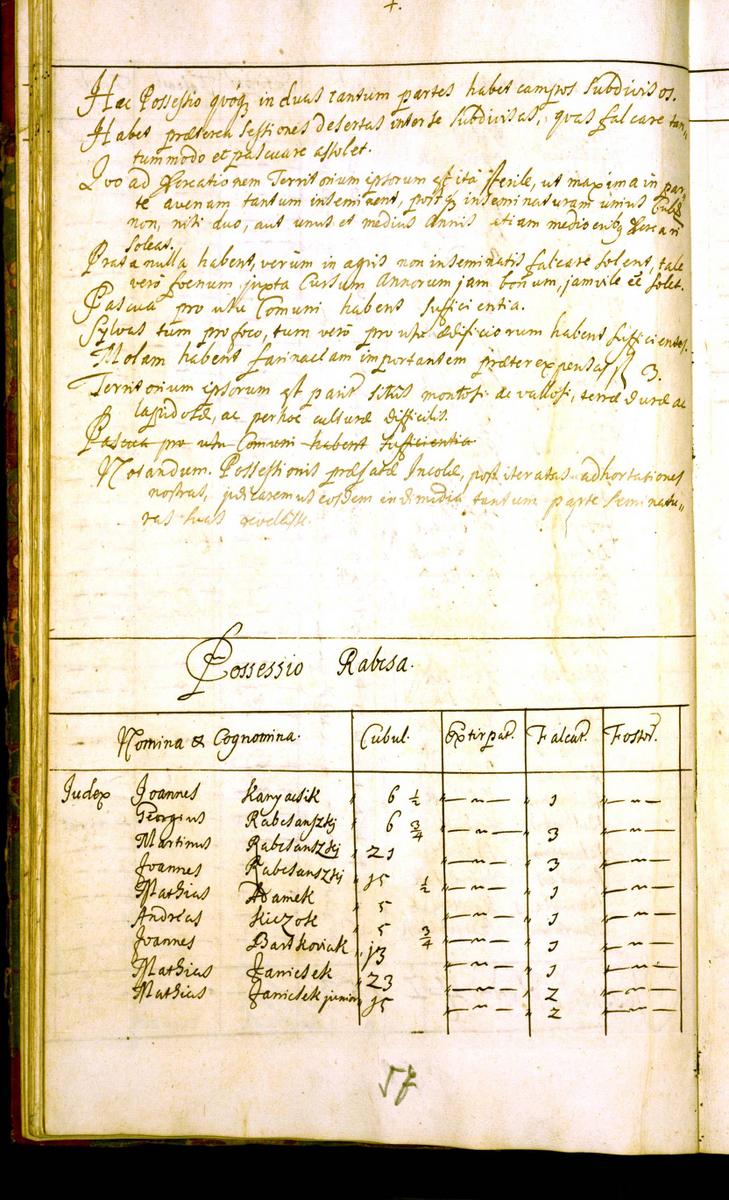 4.
Hæc Possessio quóq; in duas tantum partes habet campos subdivisos.
Habet præterea Sessiones desertas inter se subdivisas, quas falcare tan„
tummodo et pascuare assolet.
Quo ad Territorium ipsorum est ita sterile, ut maxima in par„
te avenam tantum inseminent, postq; inseminaturam unius
non, nisi duo, aut unus et medius Annis etiam mediocribq;
soleat.
Prata nulla habent, verùm in agris non inseminatis falcare solent, tale
verò foenum juxta Cursum Annorum jam bonum, jam vile eē solet.
Pascua pro usu Comuni habent sufficientia.
Sylvas tùm pro foco, tum verò pro usu ædificiorum habent sufficientes.
Molam habent farinaclam importantem præter expensas fl 3.
Territorium ipsorum est parit sitûs montosi ac vallosi, terræ duræ ac
lapidosæ, ac per hoc culturæ difficilis.
Pascua pro usu Comuni habent sufficientia
Notandum. Possessionis præfatæ Incolæ, post iteratas adhortationes
nostras, judicaremus eosdem in dimidia tantum parte Seminatu„
ras suas revelasse.
Possessio Rabcsa.
Nomina & Cognomina. Cubul. Extirpat. Falcat. Fossor.
Judex Joannes Kanyacsik „ 6 ½ „—~— „ 1 „—~—
Georgius Rabcsanszkj „ 6 ¾ „—~— „ 3 „—~—
Martinus Rabcsanszkj „ 21 „—~— „ 3 „—~—
Joannes Rabcsanszkj „ 15 ½ „—~— „ 1 „—~—
Mathias Adamek „ 5 „—~— „ 1 „—~—
Andreas Kiczok „ 5 ¾ „—~— „ 1 „—~—
Joannes Bartkoviak „ 13 „—~— „ 1 „—~—
Mathias Janicsek „ 23 „—~— „ 2 „—~—
Mathias Janicsek junior „ 15 „—~— „ 2 „—~—
57